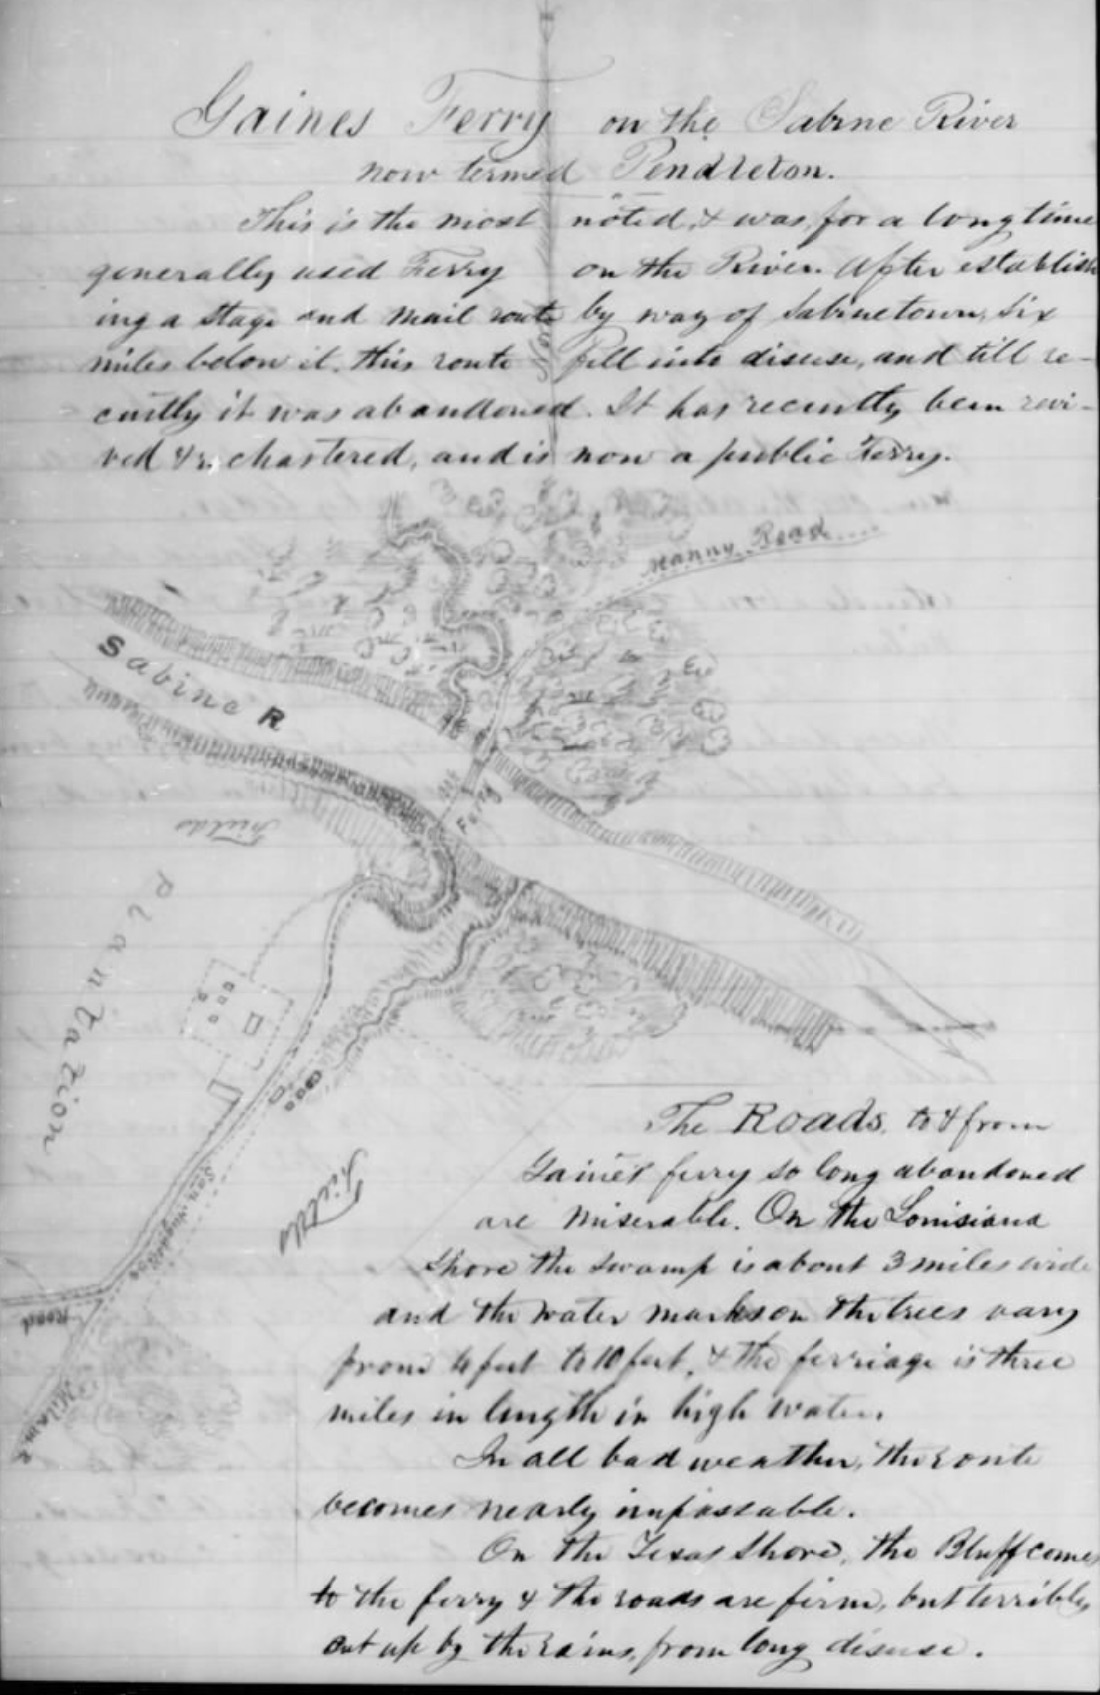 Gaines Ferry on the Sabine River
now termed Pendleton.
This is the most noted, & was, for a long time
generally used Ferry on the River. After establish
ing a stage and mail route by way of Sabinetown, six
miles below it, this route fell into disuse, and till re-
cently it was abandoned. It has recently been revi-
ved & chartered, and is now a public Ferry.
Manny Road
Sabine R
Ferry
Fields
Plantation
San Augustine
Road
Milam R
Fields
The Roads, to & from
Gaines ferry so long abandoned
are miserable. On the Louisiana
Shore the swamp is about 3 miles wide
and the water marks on the trees vary
from 6 feet to 10 feet, & the ferriage is three
miles in length in high water.
In all bad weather, the route
becomes nearly impassable.
On the Texas Shore, the Bluff comes
to the ferry & the roads are firm, but terribly
cut up by the rains, from long disuse.